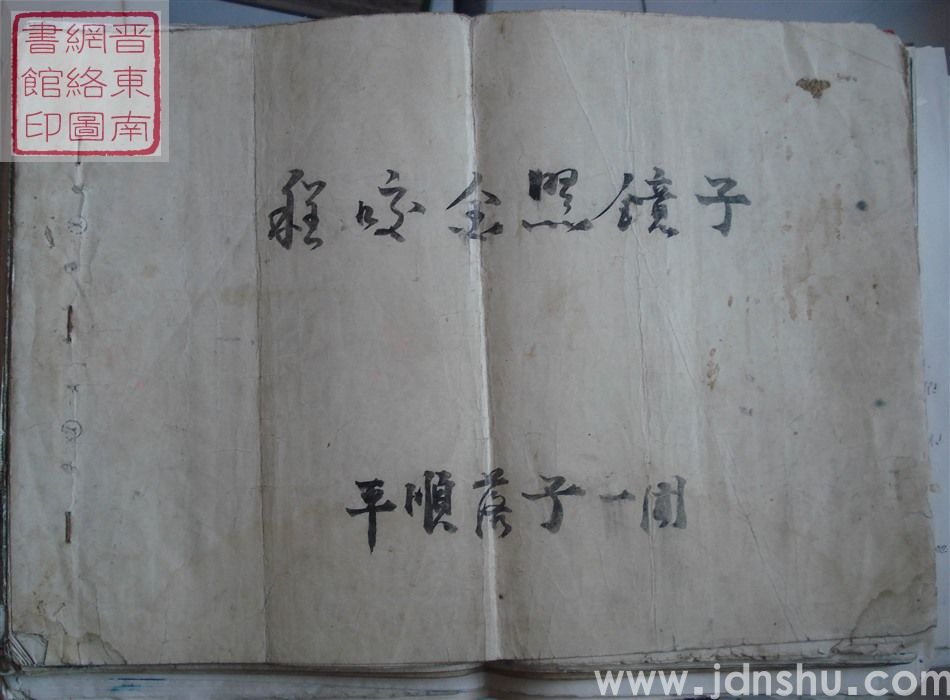 晋東南
網絡圖
書館印
程咬金照鏡子
平順落子一团
www.jdnshu.com